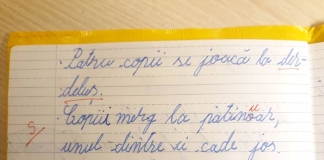 Patru copii se joacă la der-
deluș.
Copiii merg la patinoar,
unul dintre ei cade jos.